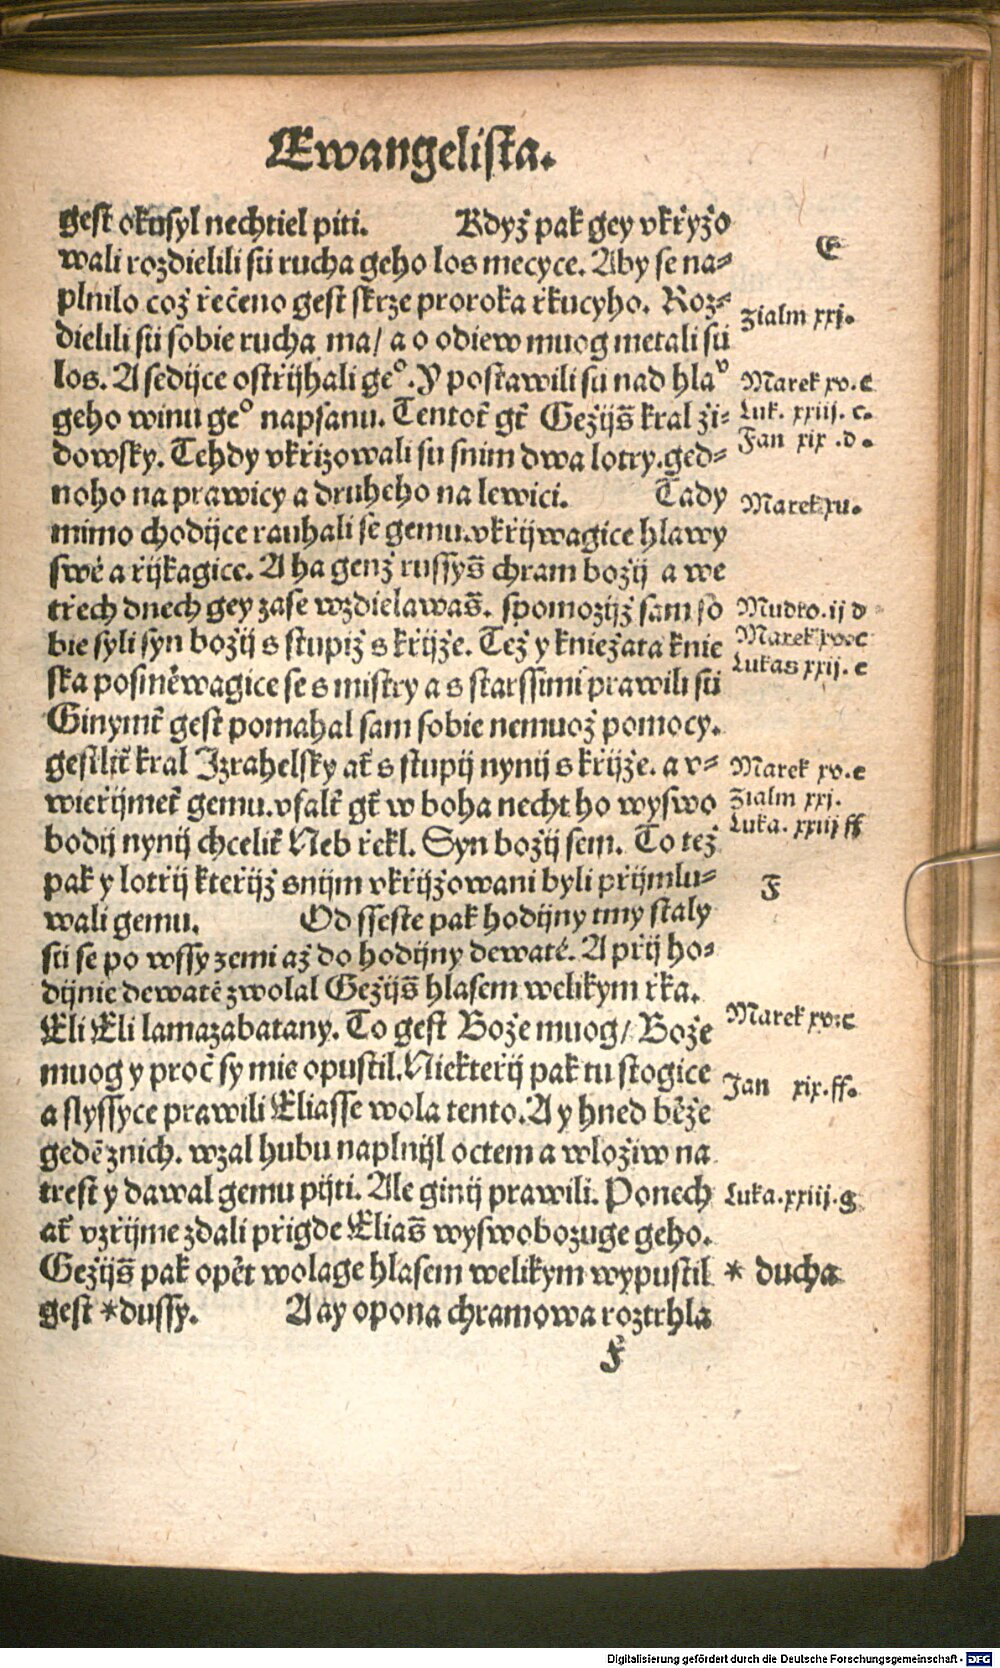 Ewangelista.
gest okusyl nechtiel piti. Kdyż pak gey vkřyżo
wali rozdielili sú rucha geho los mecyce. Aby se na⸗
plnilo coż řečeno gest skrze proroka řkucyho. Roz⸗
dielili sú sobie rucha ma/ a o odiew muog metali sú
los. A sedijce ostřijhali geº. Y postawili su nad hlaͮ
geho winu geº napsanu. Tentoť gť Geżijš kral żi⸗
dowsky. Tehdy vkřizowali su snim dwa lotry. ged⸗
noho na prawicy a druheho na lewici. Tady
mimo chodijce rauhali se gemu. vkřijwagice hlawy
swé a řijkagice. A ha genż russyš chram bożij a we
třech dnech gey zase wzdielawaš. spomozijż sam so
bie syli syn bożij s stupiż s křijże. Też y knieżata knie
ska posmĕwagice se s mistry a s starssimi prawili sú
Ginymť gest pomahal sam sobie nemuoż pomocy.
gestliť kral Izrahelsky ať s stupij nynij s křijże. a v⸗
wieřijmeť gemu. vfalť gť w boha necht ho wyswo
bodij nynij chceliť Neb řekl. Syn bożij sem. To też
pak y lotřij kteřijż snijm vkřijżowani byli přijmlu⸗
wali gemu. Od sseste pak hodijny tmy staly
sú se po wssy zemi aż do hodijny dewaté. A přij ho⸗
dijnie dewaté zwolal Geżijš hlasem welikym řka.
Eli Eli lamazabatany. To gest Boże muog/ Boże
muog y proč sy mie opustil. Niekteřij pak tu stogice
a slyssyce prawili Eliasse wola tento. A y hned bĕże
gedĕ znich. wzal hubu naplnijl octem a wlożiw na
trest y dawal gemu pijti. Ale ginij prawili. Ponech
ať vzřijme zdali přigde Eliaš wyswobozuge geho.
Geżijš pak opĕt wolage hlasem welikym wypustil
gest *dussy. A ay opona chramowa roztrhla
F
E
Zialm xxj.
Marek xv. c
Luk. xxiij. c.
Jan xix .d.
Marek xv.
Mudro. ij d
Marek xv. c
Lukas xxij. c
Marek xv. c
Zialm xxj.
Luka. xxiij ff
F
Marek xv. c
Jan xix. ff.
Luka. xxiij. g
* ducha
Digitalisierung gefördert durch die Deutsche Forschungsgemeinschaft - DFG